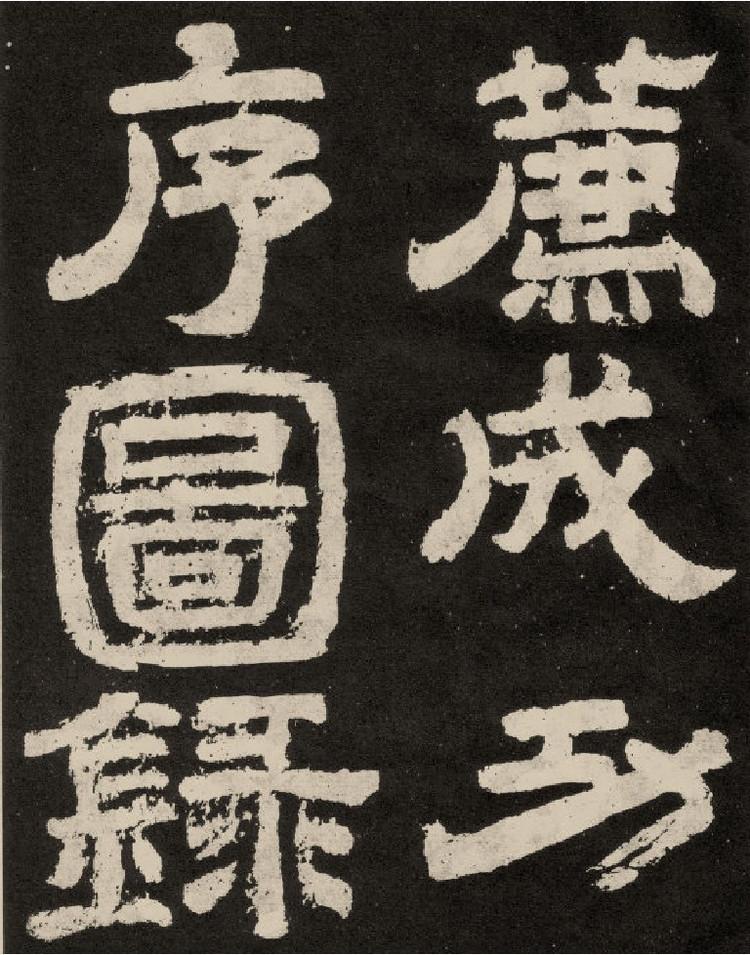 薦成功
序圖錄